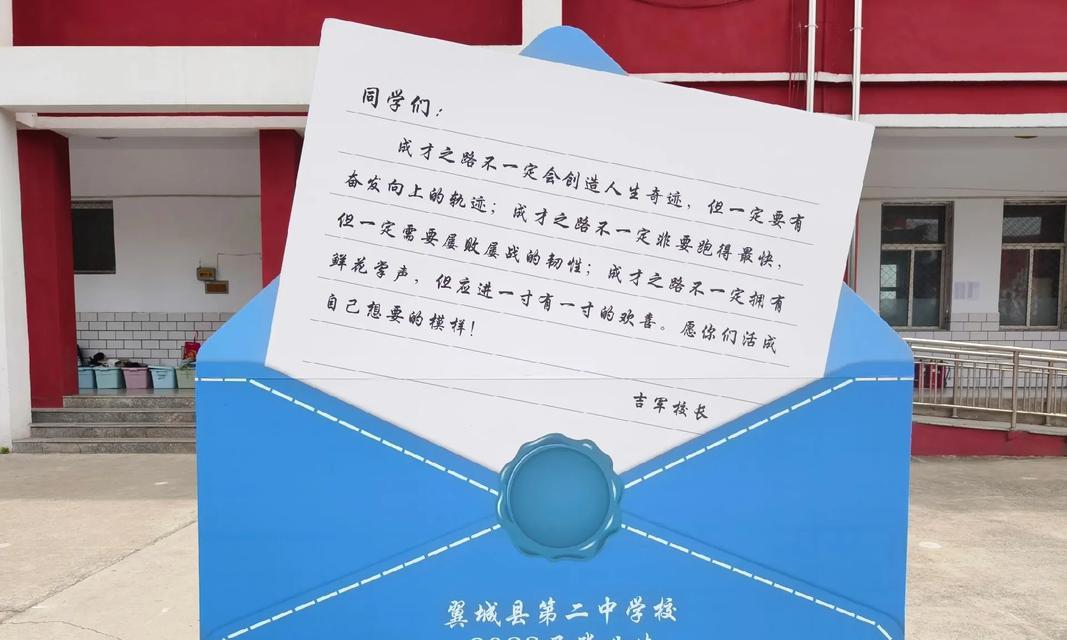 同学们：
成才之路不一定会创造人生奇迹，但一定要有
奋发向上的轨迹；成才之路不一定非要跑得最快，
但一定需要屡败屡战的韧性；成才之路不一定拥有
鲜花掌声，但应进一寸有一寸的欢喜。愿你们活成
自己想要的模样！
吉军校长
翼城县第二中学校